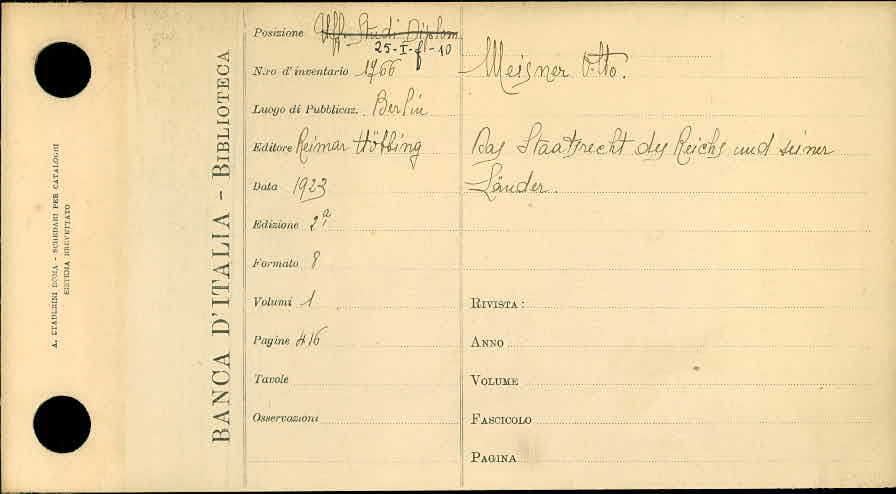 A. STADERINI ROMA - SCHEDARI PER CATALOGHI
SISTEMA BREVETTATO
BANCA D'ITALIA - BIBLIOTECA
Posizione Uff. Studi Diplom
25-I-f-10
N.ro d'inventario 1766
Luogo di Pubblicaz. Berlin
Editore Reimar Hobbing
Data 1923
Edizione 2ª
Formato 8
Volumi 1
Pagine 416
Tavole
Osservazioni
Meisner Otto.
Das Staatsrecht des Reichs und seiner
Länder.
RIVISTA :
ANNO
VOLUME
FASCICOLO
PAGINA